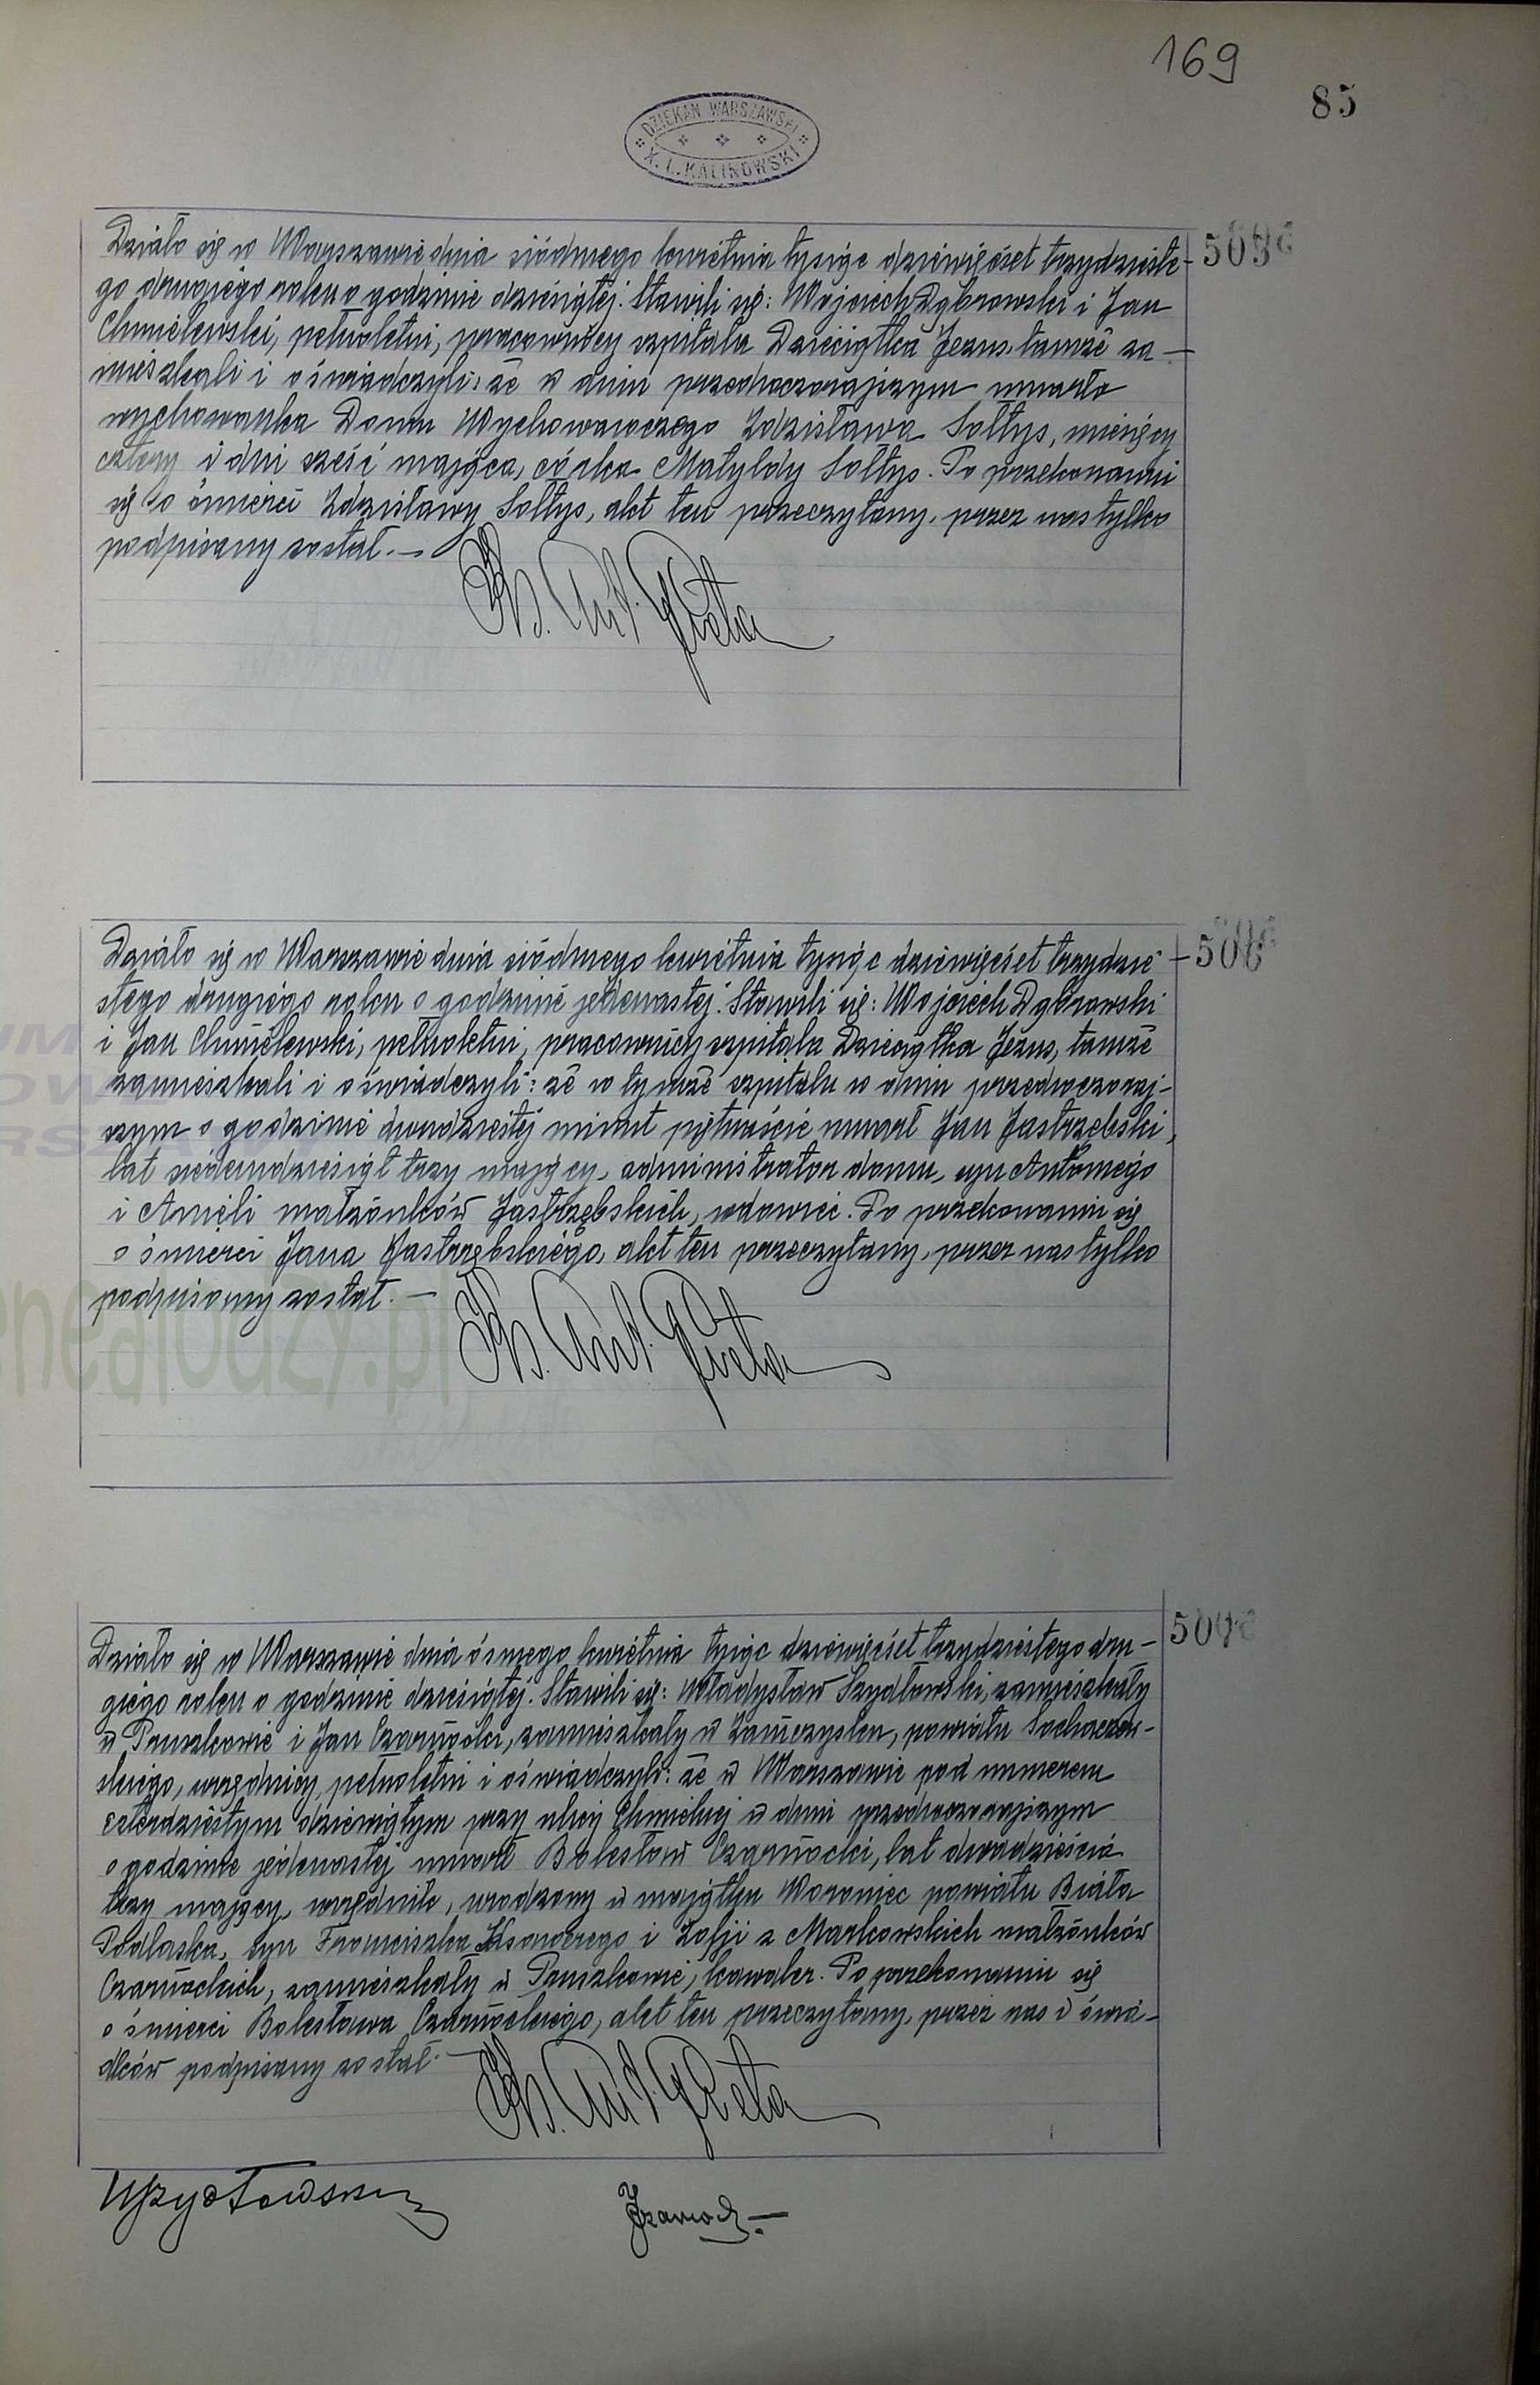 169
85
DZIEKAN WARSZAWSKI
X. L. KALINOWSKI
Działo się w Warszawie dnia siódmego kwietnia tysiąc dziewięćset trzydzieste-
go drugiego roku o godzinie dziesiątej. Stawili się: Wojciech Dąbrowski i Jan
Chmielewski, pełnoletni, pracownicy szpitala Dzieciątka Jezus, tamże za-
mieszkali i oświadczyli: że w dniu przedwczorajszym umarła
wychowanka Domu Wychowawczego Zdzisława Sołtys, miesięcy
cztery i dni sześć mająca, córka Matyldy Sołtys. Po przekonaniu
się o śmierci Zdzisławy Sołtys, akt ten przeczytany, przez nas tylko
podpisany został.—
Ks. Ant.
Działo się w Warszawie dnia siódmego kwietnia tysiąc dziewięćset trzydzie-
stego drugiego roku o godzinie jedenastej. Stawili się: Wojciech Dąbrowski
i Jan Chmielewski, pełnoletni, pracownicy szpitala Dzieciątka Jezus, tamże
zamieszkali i oświadczyli: że w tymże szpitalu w dniu przedwczoraj-
szym o godzinie dwudziestej minut piętnaście umarł Jan Jastrzębski,
lat siedemdziesiąt trzy mający, administrator domu, syn Antoniego
i Anieli małżonków Jastrzębskich, wdowiec. Po przekonaniu się
o śmierci Jana Jastrzębskiego, akt ten przeczytany, przez nas tylko
podpisany został.—
Ks. Ant.
Działo się w Warszawie dnia ósmego kwietnia tysiąc dziewięćset trzydziestego dru-
giego roku o godzinie dziesiątej. Stawili się: Władysław Szydłowski, zamieszkały
w Pruszkowie i Jan Czarnocki, zamieszkały w Zamczysku, powiatu Sochaczew-
skiego, urzędnicy, pełnoletni i oświadczyli: że w Warszawie pod numerem
czterdziestym dziewiątym przy ulicy Chmielnej w dniu przedwczorajszym
o godzinie jedenastej umarł Bolesław Czarnocki, lat dwadzieścia
trzy mający, urzędnik, urodzony w majątku Woroniec powiatu Biała
Podlaska, syn Franciszka Ksawerego i Zofji z Markowskich małżonków
Czarnockich, zamieszkały w Pruszkowie, kawaler. Po przekonaniu się
o śmierci Bolesława Czarnockiego, akt ten przeczytany, przez nas i świa-
dków podpisany został.—
Ks. Ant.
WSzydłowski